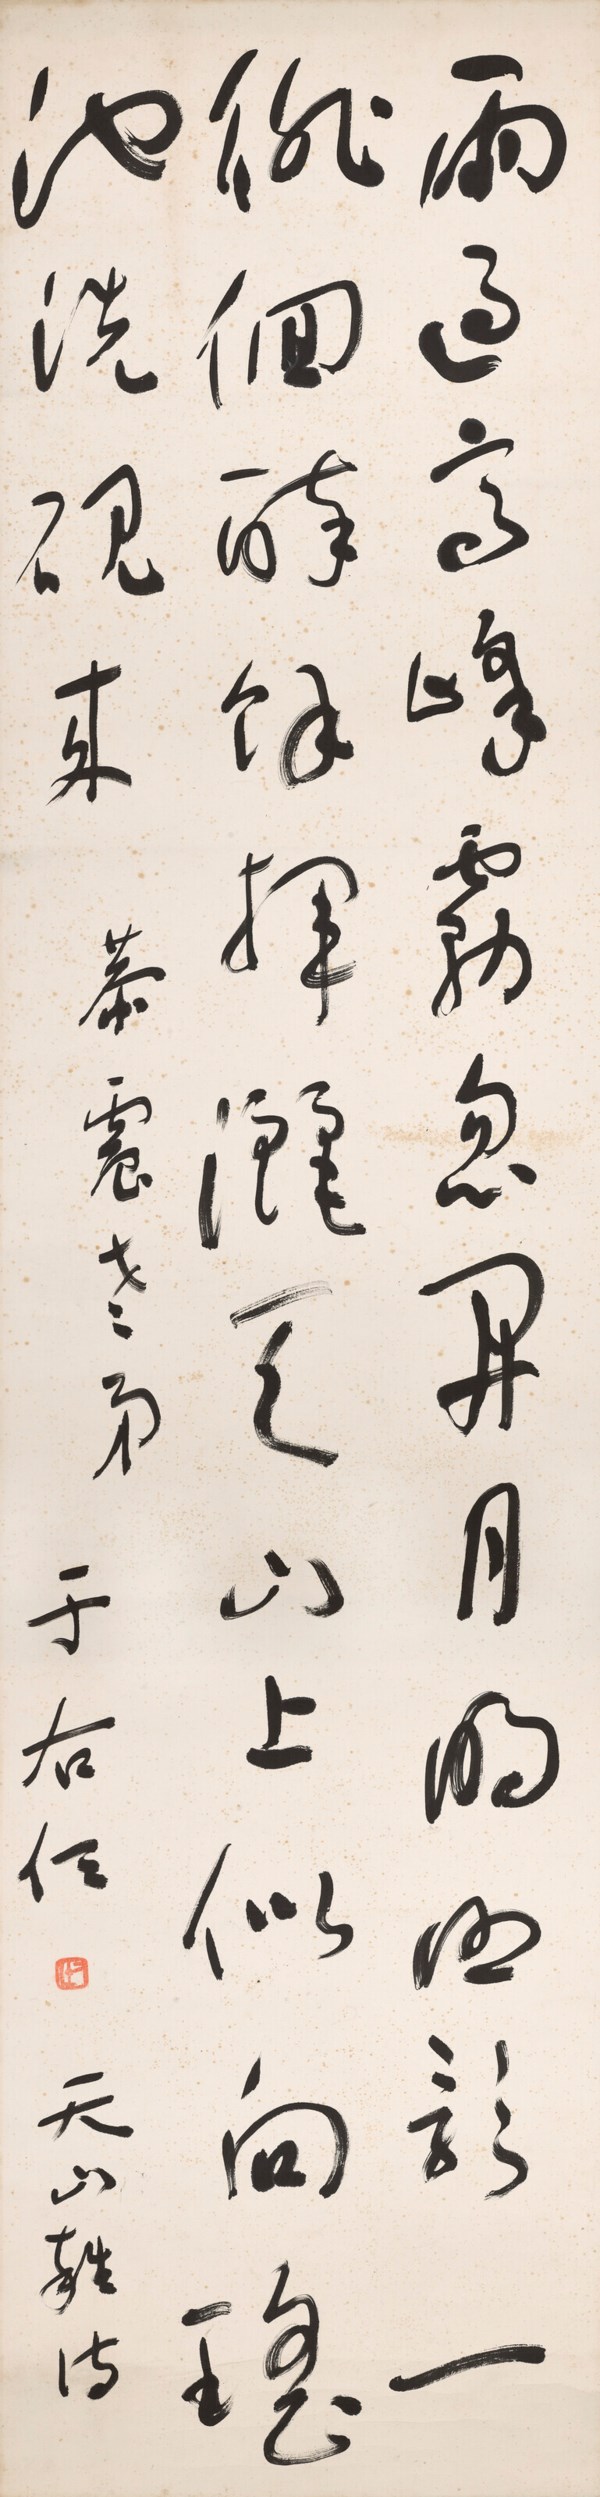 雨過高峰霧忽開月明影一
徘徊醉餘揮灑天山上似向瑤
池洗硯來 震老弟 于右任 天山雜詩